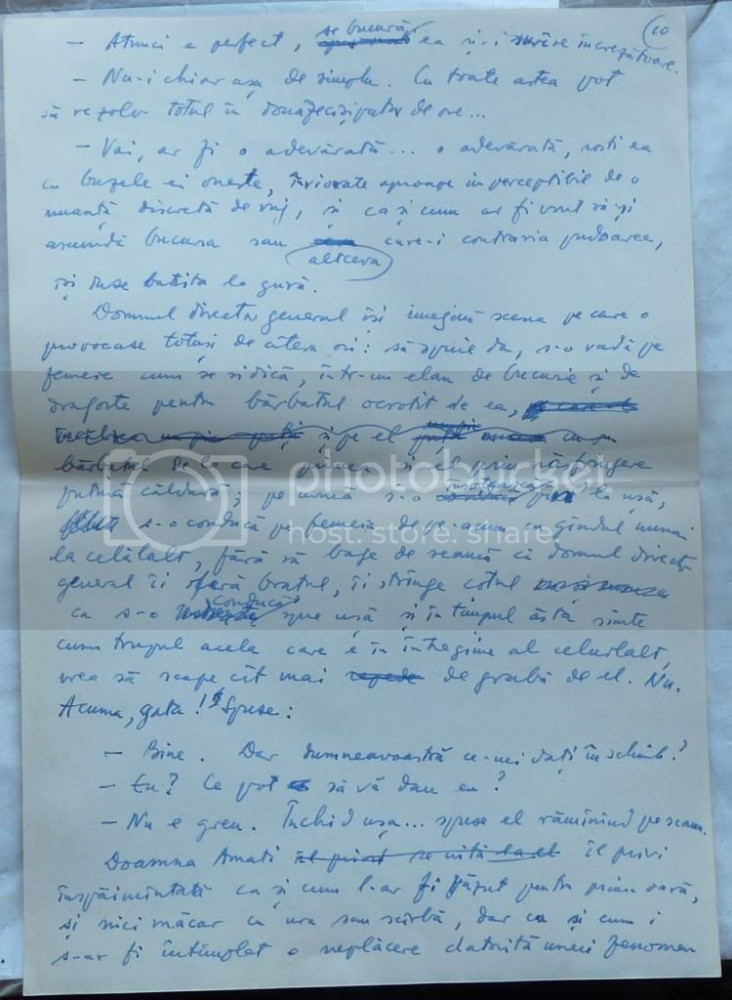 10
— Atunci e perfect, se bucură ea și-i surîse încrezătoare.
— Nu-i chiar așa de simplu. Cu toate astea pot
să rezolv totul în douăzecișipatru de ore...
— Vai, ar fi o adevărată... o adevărată, rosti ea
cu buzele ei oneste, înviorate aproape imperceptibil de o
nuanță discretă de ruj, și ca și cum ar fi vrut să-și
ascundă bucuria sau altceva care-i contraria pudoarea,
își duse batista la gură.
Domnul director general își imagină scena pe care o
provocase totuși de cîteva ori: să spuie da, s-o vadă pe
femeie cum se ridică, într-un elan de bucurie și de
dragoste pentru bărbatul ocrotit de ea,
și pe el cu un
bărbatul de la care primea și el prin răsfrîngere
puțină căldură; pe urmă s-o însoțească la ușă,
s-o conducă pe femeia de pe-acum cu gîndul numai
la celălalt, fără să bage de seamă că domnul director
general îi oferă brațul, îi strînge cotul
ca s-o conducă spre ușă și în timpul ăsta simte
cum trupul acela care e în întregime al celuilalt,
vrea să scape cît mai degrabă de el. Nu.
Acuma, gata! Spuse:
— Bine. Dar dumneavoastră ce-mi dați în schimb?
— Eu? Ce pot să vă dau eu?
— Nu e greu. Închid ușa... spuse el rămînind pe scaun.
Doamna Amati îl privi
înspăimîntată ca și cum l-ar fi văzut pentru prima oară,
și nici măcar cu ura sau scîrbă, dar ca și cum i
s-ar fi întîmplat o neplăcere datorită unui fenomen
photobucket
host. store. share.